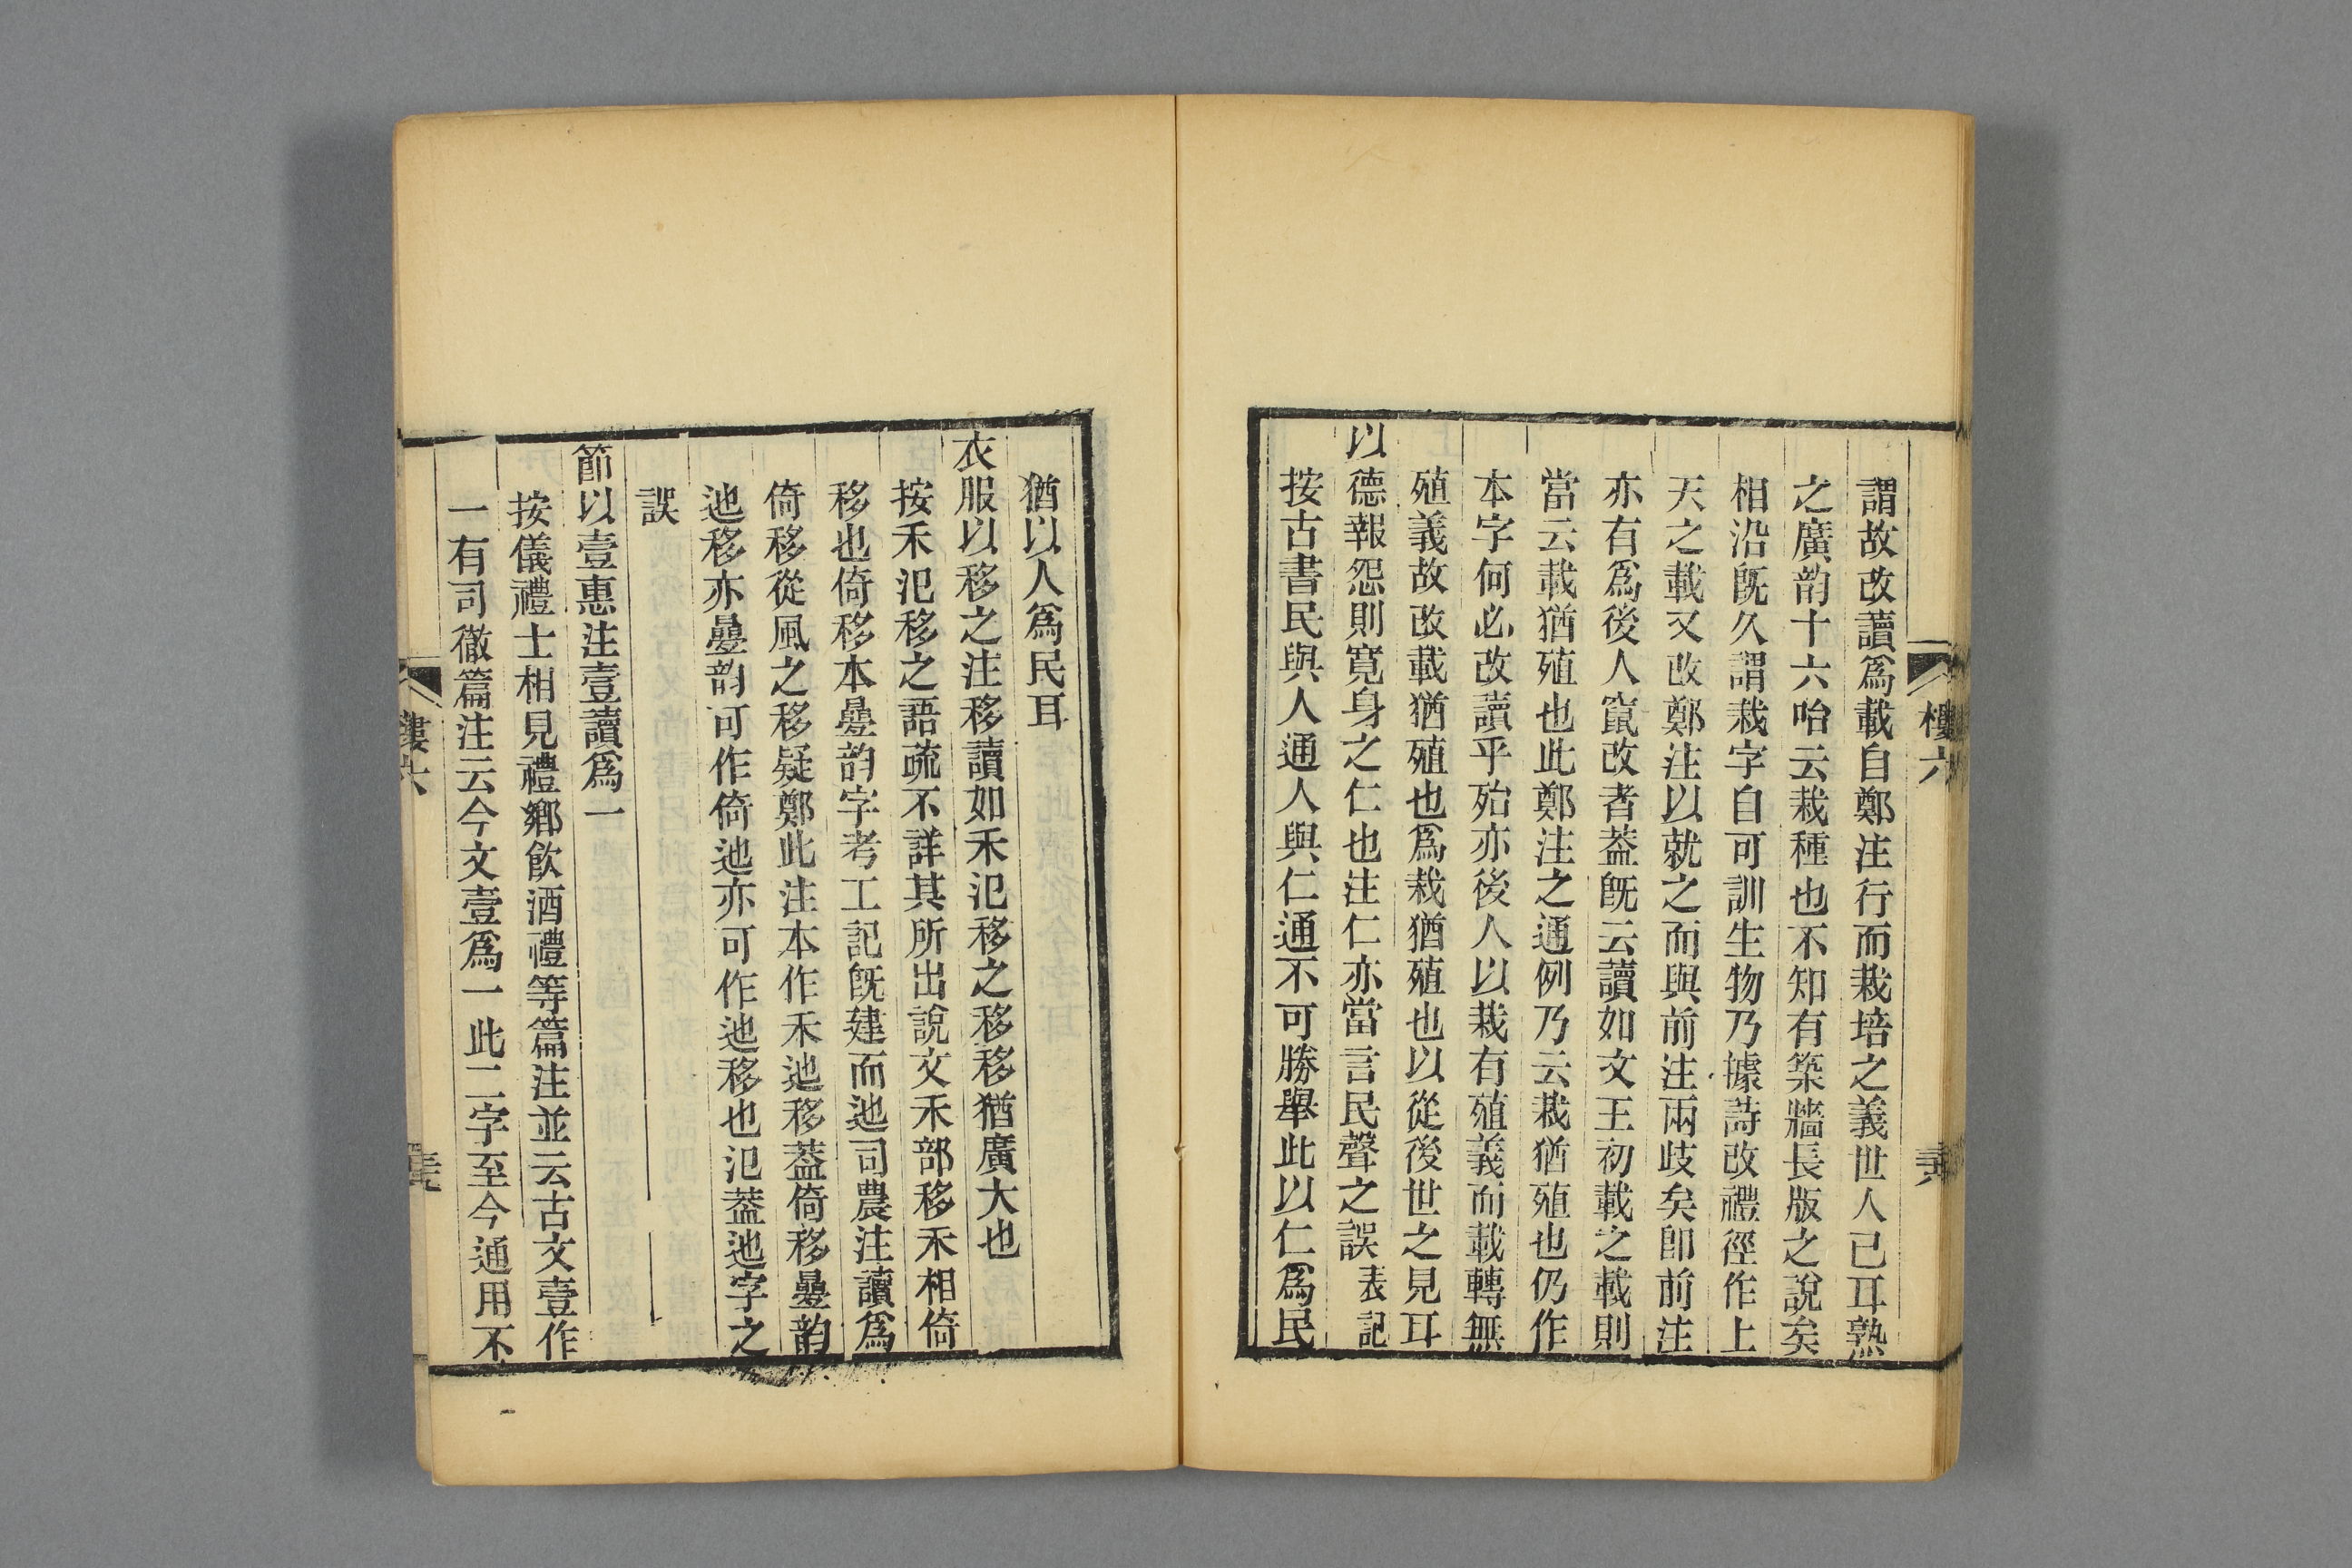 樓六
謂故改讀爲載自鄭注行而栽培之義世人已耳熟
之廣韵十六咍云栽種也不知有築牆長版之說矣
相沿旣久謂栽字自可訓生物乃據詩改禮徑作上
天之載又改鄭注以就之而與前注兩歧矣卽前注
亦有爲後人竄改者葢旣云讀如文王初載之載則
當云載猶殖也此鄭注之通例乃云栽猶殖也仍作
本字何必改讀乎殆亦後人以栽有殖義而載轉無
殖義故改載猶殖也爲栽猶殖也以從後世之見耳
以德報怨則寬身之仁也注仁亦當言民聲之誤表記
按古書民與人通人與仁通不可勝舉此以仁爲民
猶以人爲民耳
衣服以移之注移讀如禾氾移之移移猶廣大也
按禾氾移之語疏不詳其所出說文禾部移禾相倚
移也倚移本曡韵字考工記旣建而迆司農注讀爲
倚移從風之移疑鄭此注本作禾迆移葢倚移曡韵
迆移亦曡韵可作倚迆亦可作迆移也氾葢迆字之
誤
節以壹惠注壹讀爲一
按儀禮士相見禮鄉飲酒禮等篇注並云古文壹作
一有司徹篇注云今文壹爲一此二字至今通用不
樓六